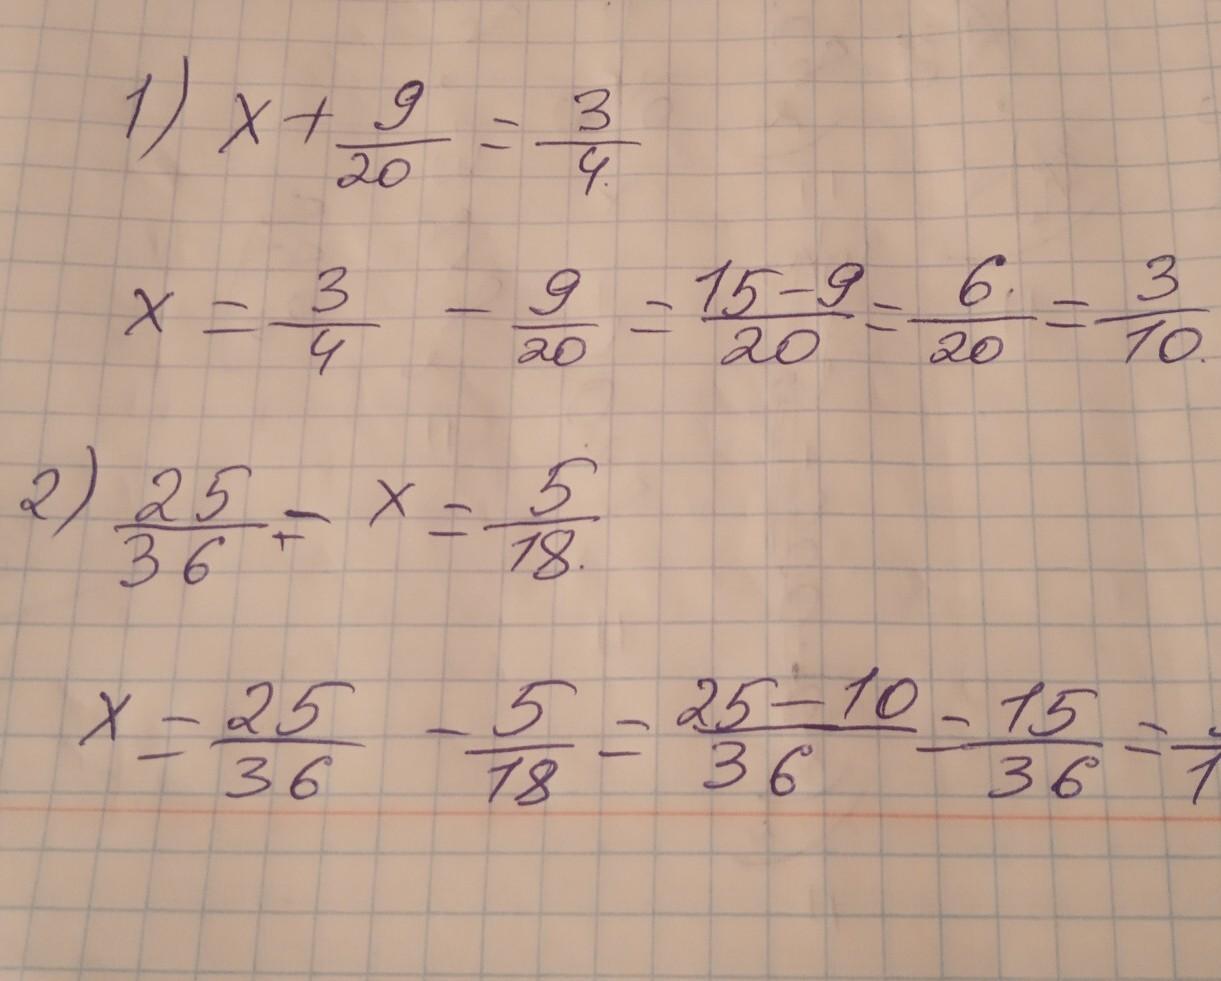 1) x + 9/20 = 3/4.
x = 3/4 - 9/20 = 15-9/20 = 6/20 = 3/10.
2) 25/36 - x = 5/18.
x = 25/36 - 5/18 = 25-10/36 = 15/36 =